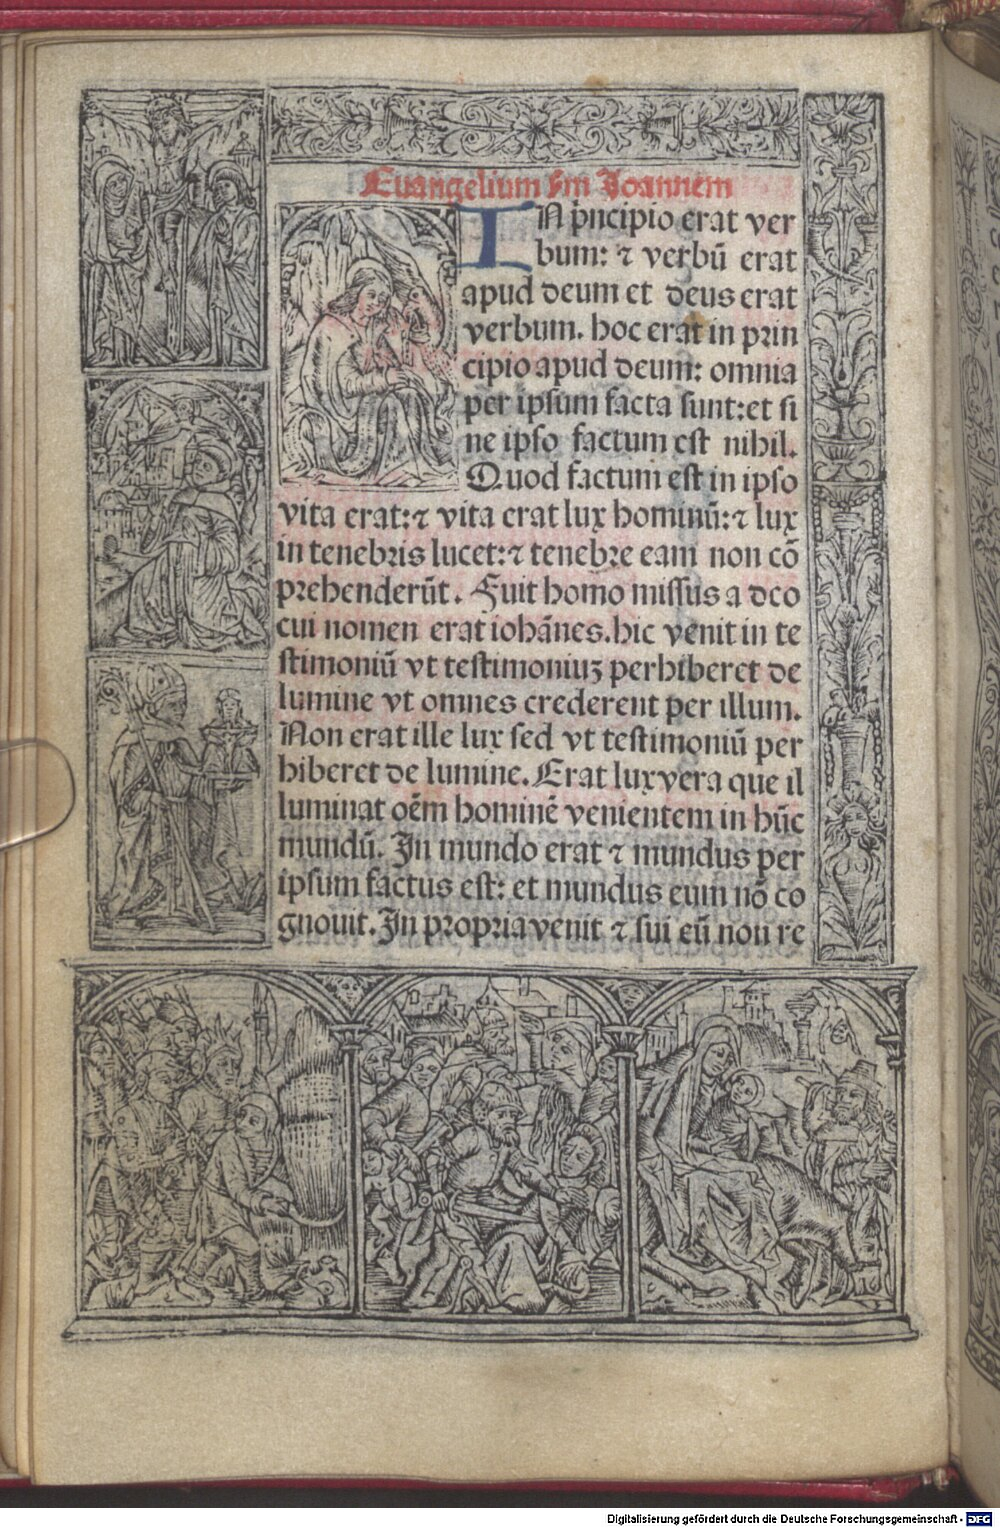 Euangelium ẜm Joannem
IN p̄ncipio erat ver
bum: ⁊ verbū erat
apud deum et deus erat
verbum. hoc erat in prin
cipio apud deum: omnia
per ipsum facta sunt: et si
ne ipso factum est nihil.
Quod factum est in ipso
vita erat: ⁊ vita erat lux hominū: ⁊ lux
in tenebris lucet: ⁊ tenebre eam non cō
prehenderūt. Fuit homo missus a deo
cui nomen erat iohānes. hic venit in te
stimoniū vt testimoniuꝫ perhiberet de
lumine vt omnes crederent per illum.
Non erat ille lux sed vt testimoniū per
hiberet de lumine. Erat lux vera que il
luminat oēm hominē venientem in hūc
mundū. In mundo erat ⁊ mundus per
ipsum factus est: et mundus eum nō co
gnouit. In propria venit ⁊ sui eū non re
Digitalisierung gefördert durch die Deutsche Forschungsgemeinschaft - DFG